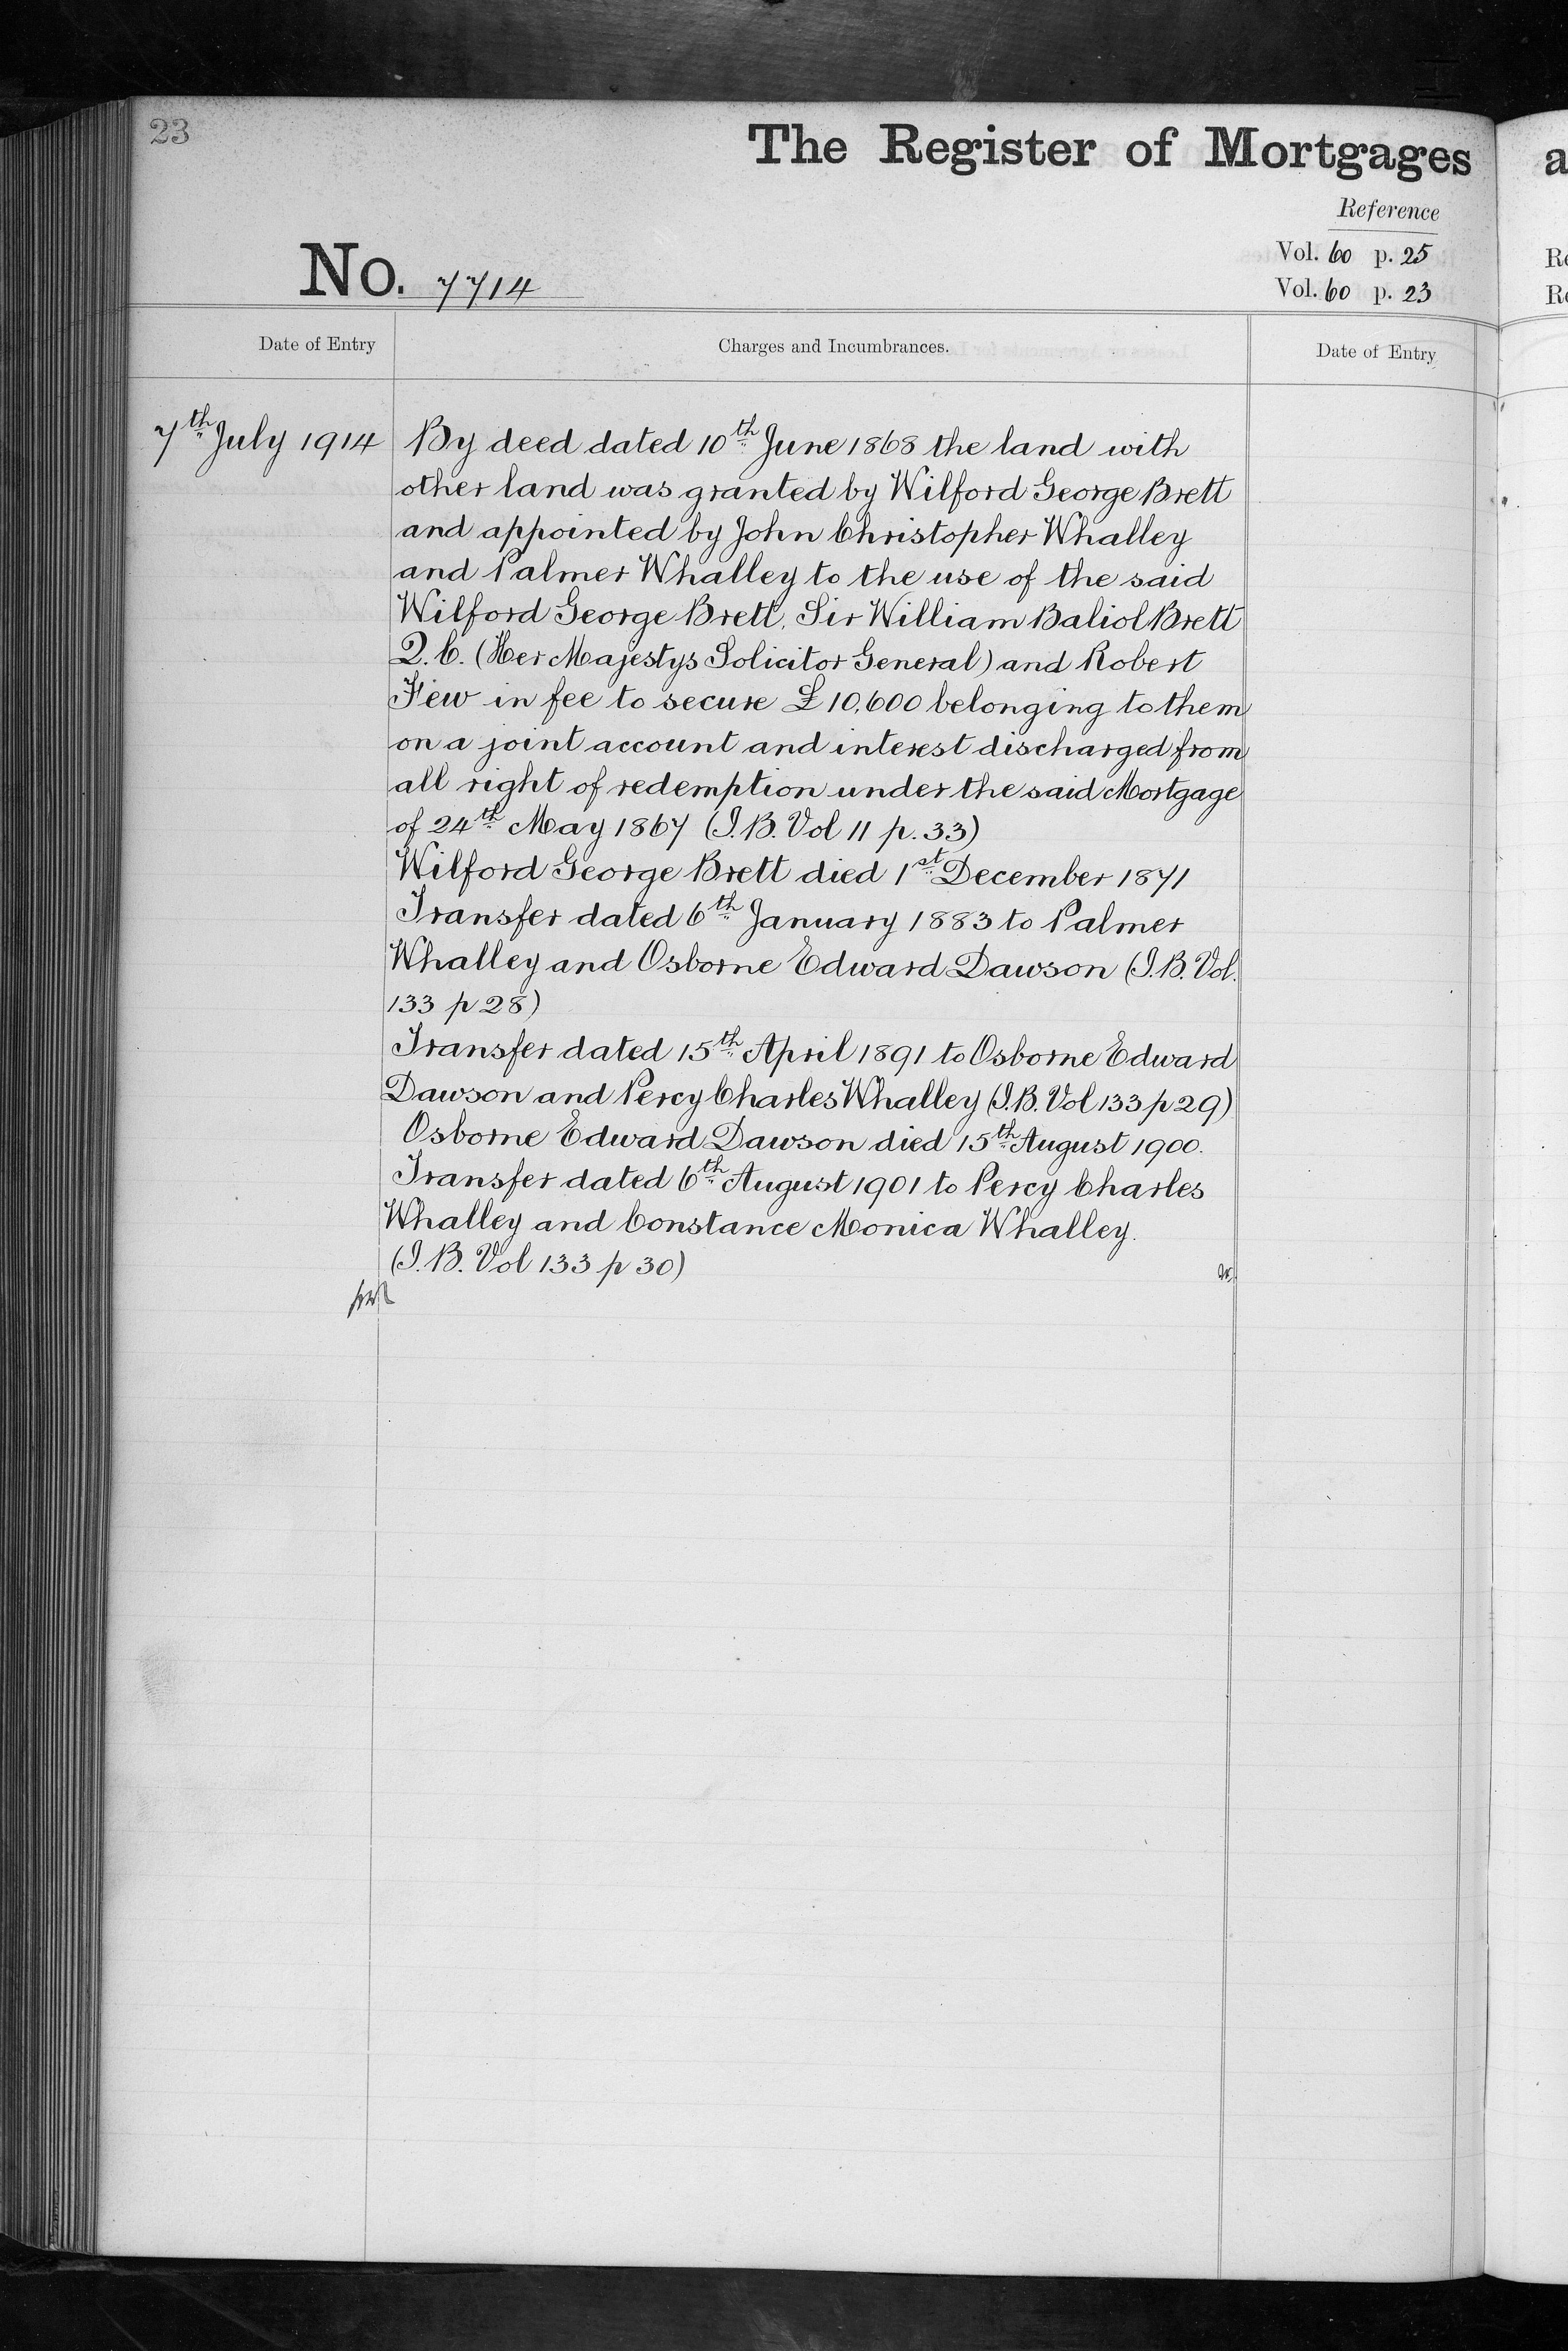 23
The Register of Mortgages
a
Reference
Vol. 60 p. 25
Vol. 60 p. 23
Re
Re
No. 7714
Date of Entry
Charges and Incumbrances.
Date of Entry
7th July 1914
By deed dated 10th June 1868 the land with
other land was granted by Wilford George Brett
and appointed by John Christopher Whalley
and Palmer Whalley to the use of the said
Wilford George Brett, Sir William Baliol Brett
Q.C. (Her Majestys Solicitor General) and Robert
Few in fee to secure £10,600 belonging to them
on a joint account and interest discharged from
all right of redemption under the said Mortgage
of 24th May 1867 (I.B. Vol 11 p. 33)
Wilford George Brett died 1st December 1871
Transfer dated 6th January 1883 to Palmer
Whalley and Osborne Edward Dawson (I.B. Vol.
133 p 28)
Transfer dated 15th April 1891 to Osborne Edward
Dawson and Percy Charles Whalley (I.B. Vol 133 p 29)
Osborne Edward Dawson died 15th August 1900.
Transfer dated 6th August 1901 to Percy Charles
Whalley and Constance Monica Whalley.
(I.B. Vol 133 p 30)